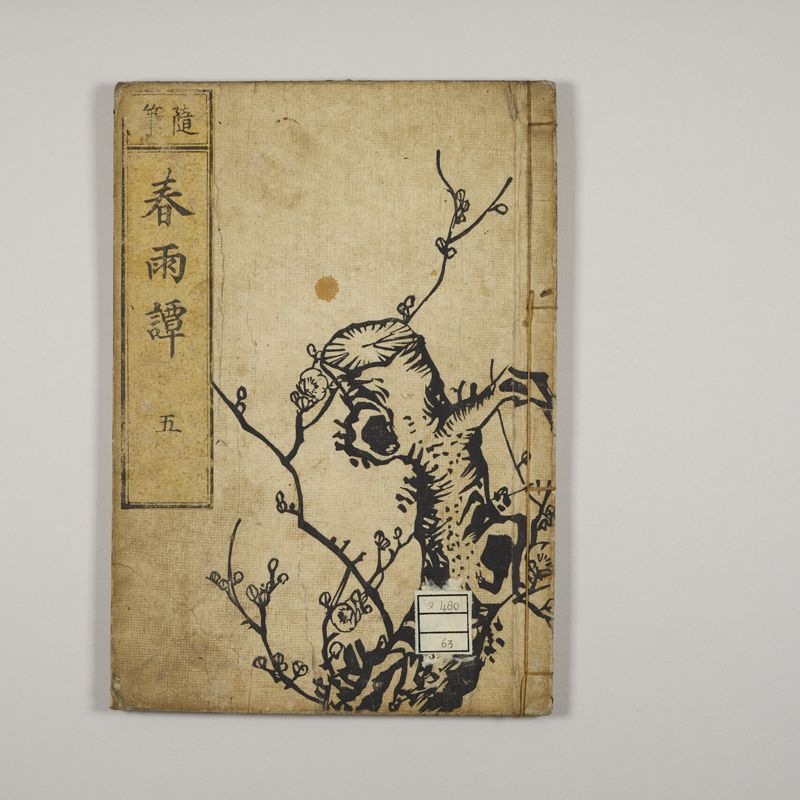 隨筆
春雨譚
五
480
63